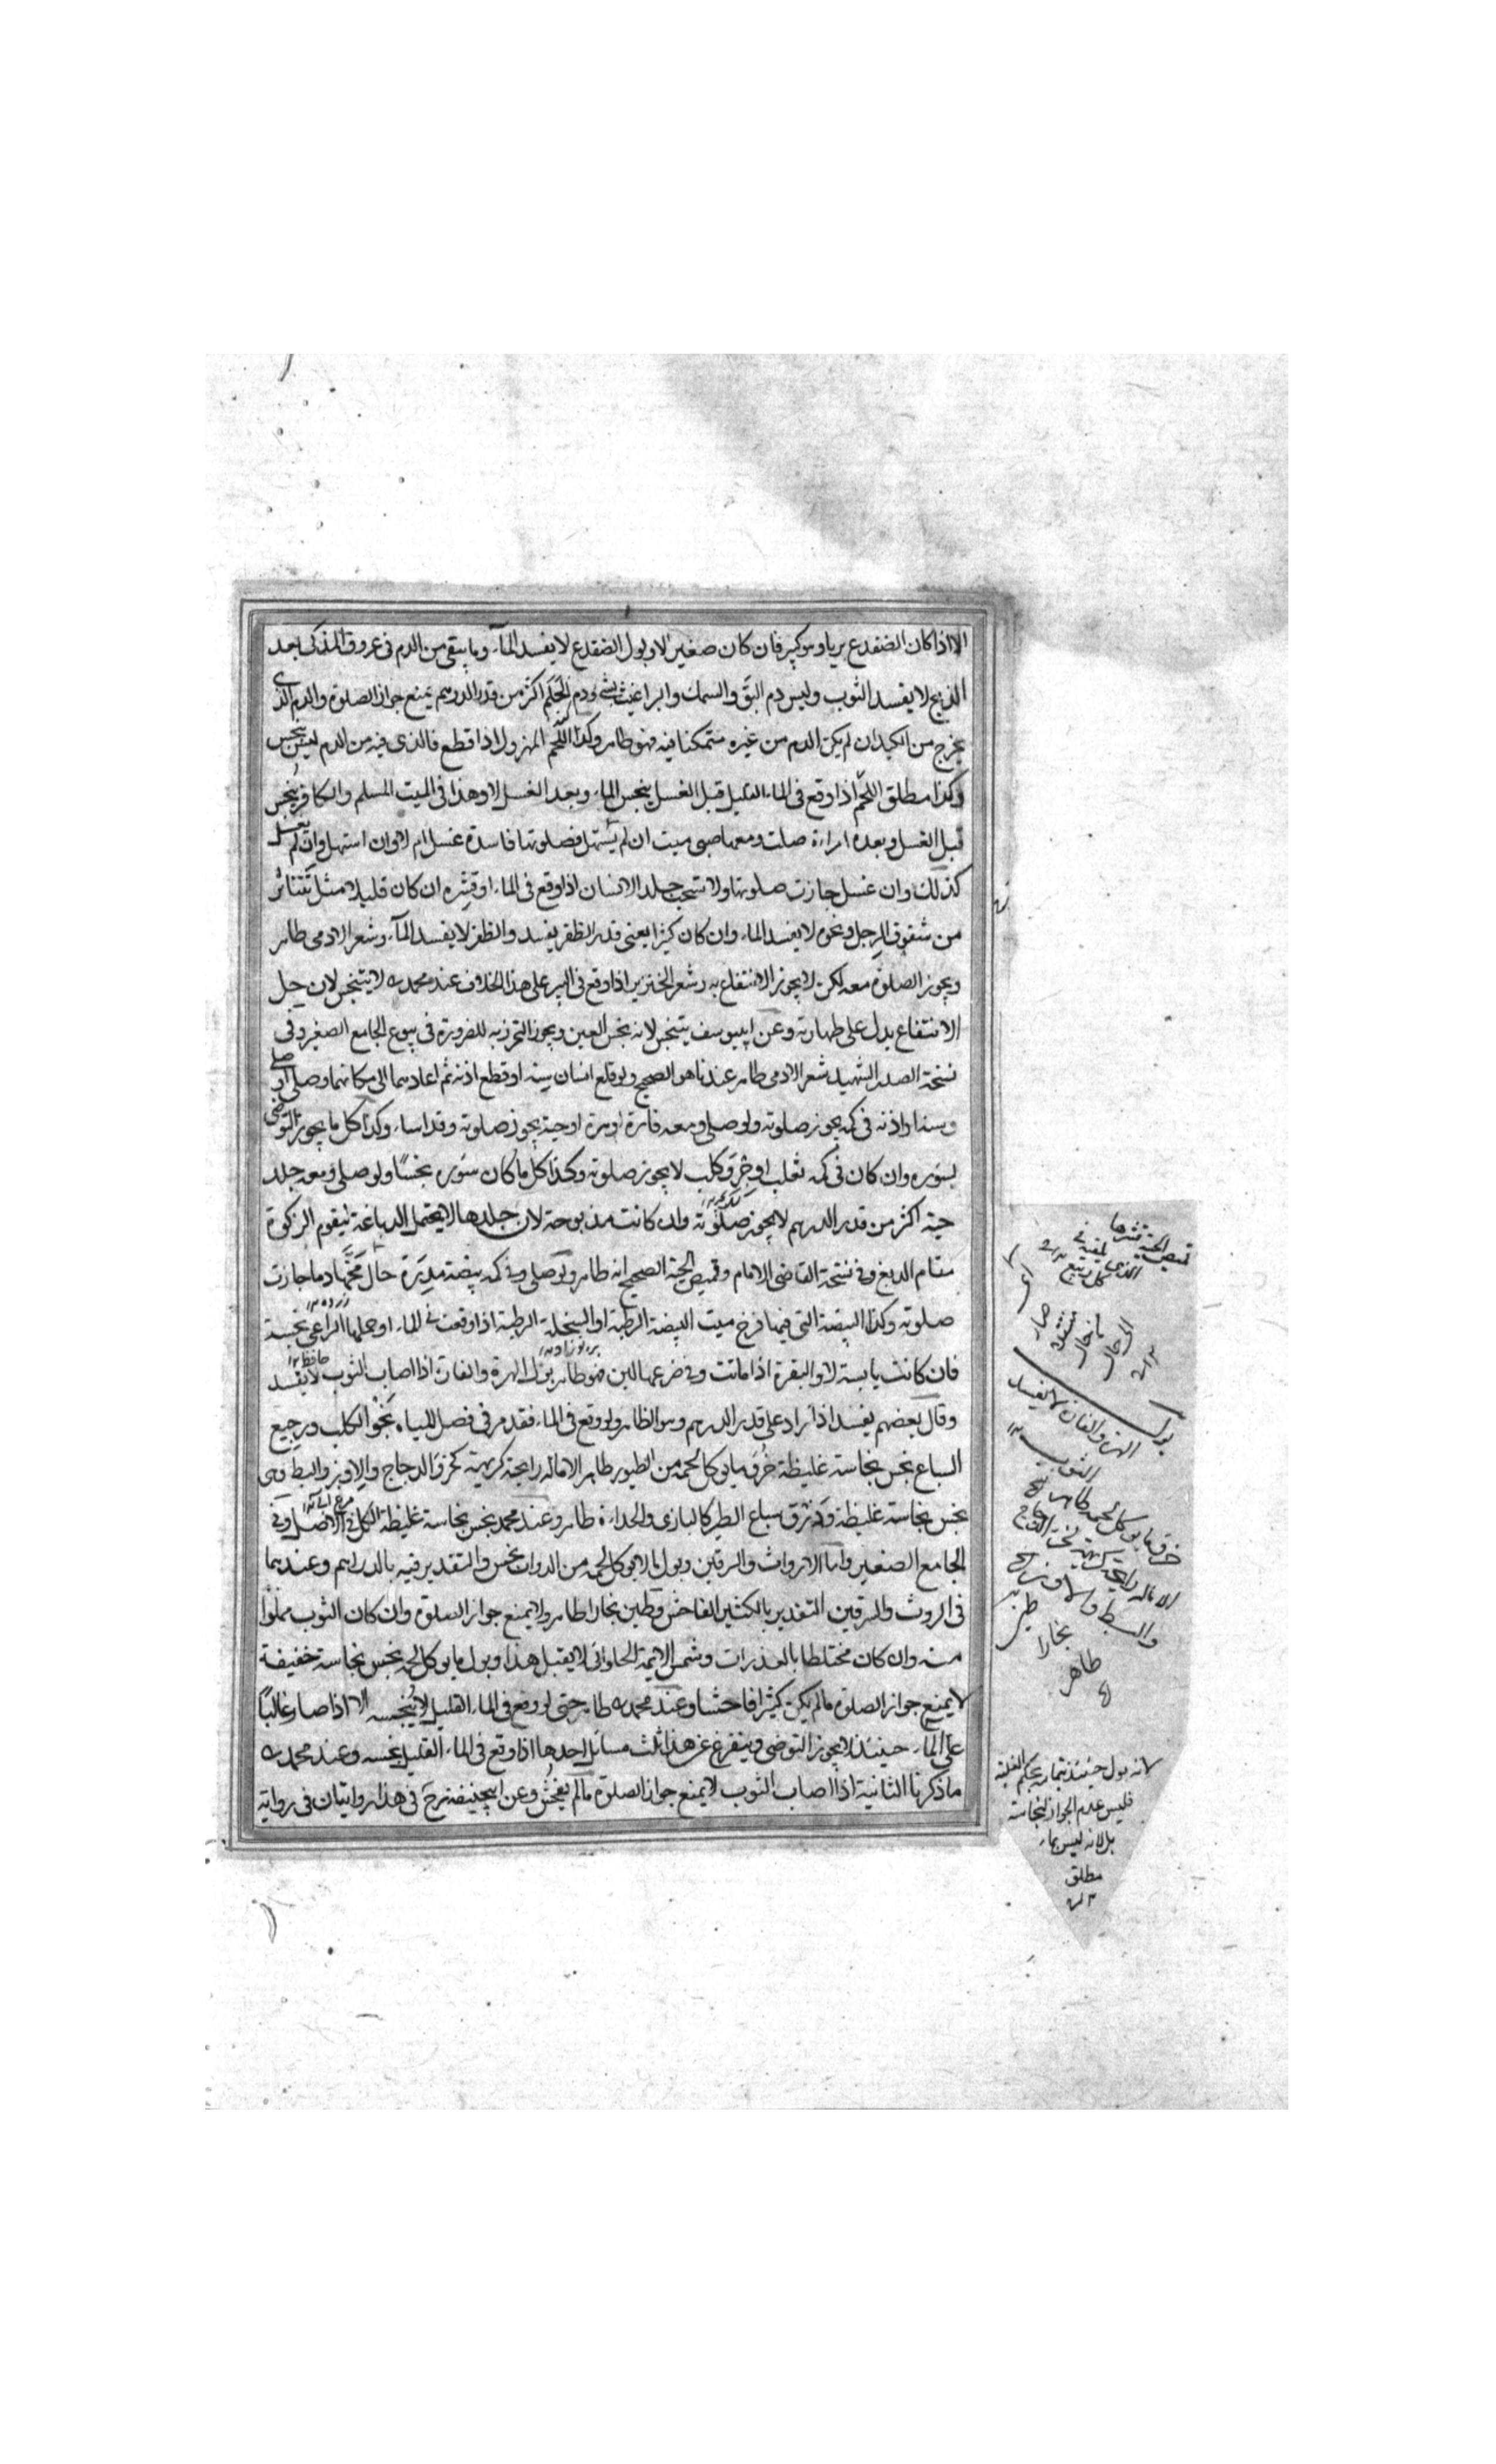 الا اذا كان الضفدع بريا وهو كبير فان كان صغيرا لا وبول الضفدع لا يفسد المآء وما يبقى من الدم فى عروق المذكى بعد
الذبح لا يفسد الثوب وليس دم البق والسمك والبراغيث بشئ ودم الحَلَم اكثر من قدر الدرهم يمنع جواز الصلوة والدم الذى
يخرج من الكبد ان لم يكن الدم من غيره متمكنا فيه فهو طاهر وكذا اللحم المهزول اذا قطع فالذى فيه من الدم ليس بنجس
وكذا مطلق اللحم اذا وقع فى الماء القليل قبل الغسل ينجس الماء وبعد الغسل لا وهذا فى الميت المسلم والكافر ينجس
قبل الغسل وبعده امراة صلت ومعها صبى ميت ان لم يستهل فصلوتها فاسدة غسل ام لا وان استهل وان لم يغسل
كذلك وان غسل جازت صلوتها ولا جلد الانسان اذا وقع فى الماء او قشره ان كان قليلا مثل تتناثر
من شقوق الرجل ونحوه لا يفسد الماء وان كان كثيرا يعنى قدر الظفر يفسد والظفر لا يفسد المآء وشعر الادمى طاهر
ويجوز الصلوة معه لكن لا يجوز الانتفاع به وشعر الخنزير اذا وقع فى البير على هذا الخلاف عند محمد ره لا يتنجس لان حل
الانتفاع يدل على طهارته وعن ابييوسف يتنجس لانه نجس العين ويجوز الخرز به للضرورة فى بيوع الجامع الصغير وفى
نسخة الصدر الشهيد شعر الادمى طاهر عندنا هو الصحيح ولو قلع انسان سنه او قطع اذنه ثم اعادهما الى مكانهما وصلى او صلى
وسنه او اذنه فى كمه يجوز صلوته ولو صلى ومعه فارة او هرة او حية يجوز صلوته وقد اساء وكذا كل ما يجوز التوضى
بسوره وان كان فى كمه ثعلب او جرو كلب لا يجوز صلوته وكذا كل ما كان سوره نجسًا ولو صلى ومعه جلد
حية اكثر من قدر الدرهم لا يجوز صلوته وان كانت مذبوحة لان جلدها لا يحتمل الدباغة ليقوم الزكوة
مقام الدبغ وفى نسخة القاضى الامام وقميص الحية الصحيح انه طاهر ولو صلى وفى كمه بيضة مذرة حال مخها دما جازت
صلوته وكذا البيضة التى فيها فرخ ميت البيضة الرطبة او السخلة الرطبة اذا وقعت فى الماء او حملها الراعى نجسة
فان كانت يابسة لا والبقرة اذا ماتت وفى ضرعها لبن فهو طاهر بول الهرة والفارة اذا اصاب الثوب لا يفسد
وقال بعضهم يفسد اذا زاد على قدر الدرهم وهو الظاهر ولو وقع فى الماء فقد مر فى فصل المياه نجو الكلب ورجيع
السباع نجس نجاسة غليظة خرؤ ما يوكل لحمه من الطيور طاهر الا ماله رايحة كريهة كخرؤ الدجاج والاوز والبط فهى
نجس نجاسة غليظة وذرق سباع الطير كالبازى والحداءة طاهر وعند محمد نجس نجاسة غليظة الكل فى الاصل وفى
الجامع الصغير واما الارواث والسرقين وبول ما لا يوكل لحمه من الدواب نجس والتقدير فيه بالدراهم وعندهما
فى الروث والسرقين التقدير بالكثير الفاحش وطين بخارا طاهر ولا يمنع جواز الصلوة وان كان الثوب مملوا
منه وان كان مختلطا بالعذرات وشمس الايمة الحلوانى لا يقبل هذا وبول ما يوكل لحمه نجس نجاسة خفيفة
لا يمنع جواز الصلوة مالم يكن كثيرا فاحشا وعند محمد ره طاهر حتى لو وقع فى الماء القليل لا ينجسه الا اذا صار غالبًا
على المآء حينئذ لا يجوز التوضى ويتفرع عن هذا ثلث مسائل احدها اذا وقع فى الماء القليل ينجسه وعند محمد ره
ما ذكرنا الثانية اذا اصاب الثوب لا يمنع جواز الصلوة مالم يفحش وعن ابيحنيفة رح فى هذا روايتان فى رواية
بول
الهرة والفارة لا يفسد
الثوب
خرؤ ما يوكل لحمه طاهر
الا ماله رايحة كريهة كخرؤ الدجاج
والبط والاوز
طين
بخارا
طاهر
لانه بول حينئذ بحكم الغلبة
فليس عدم الجواز لنجاسته
بل لانه ليس بماء
مطلق